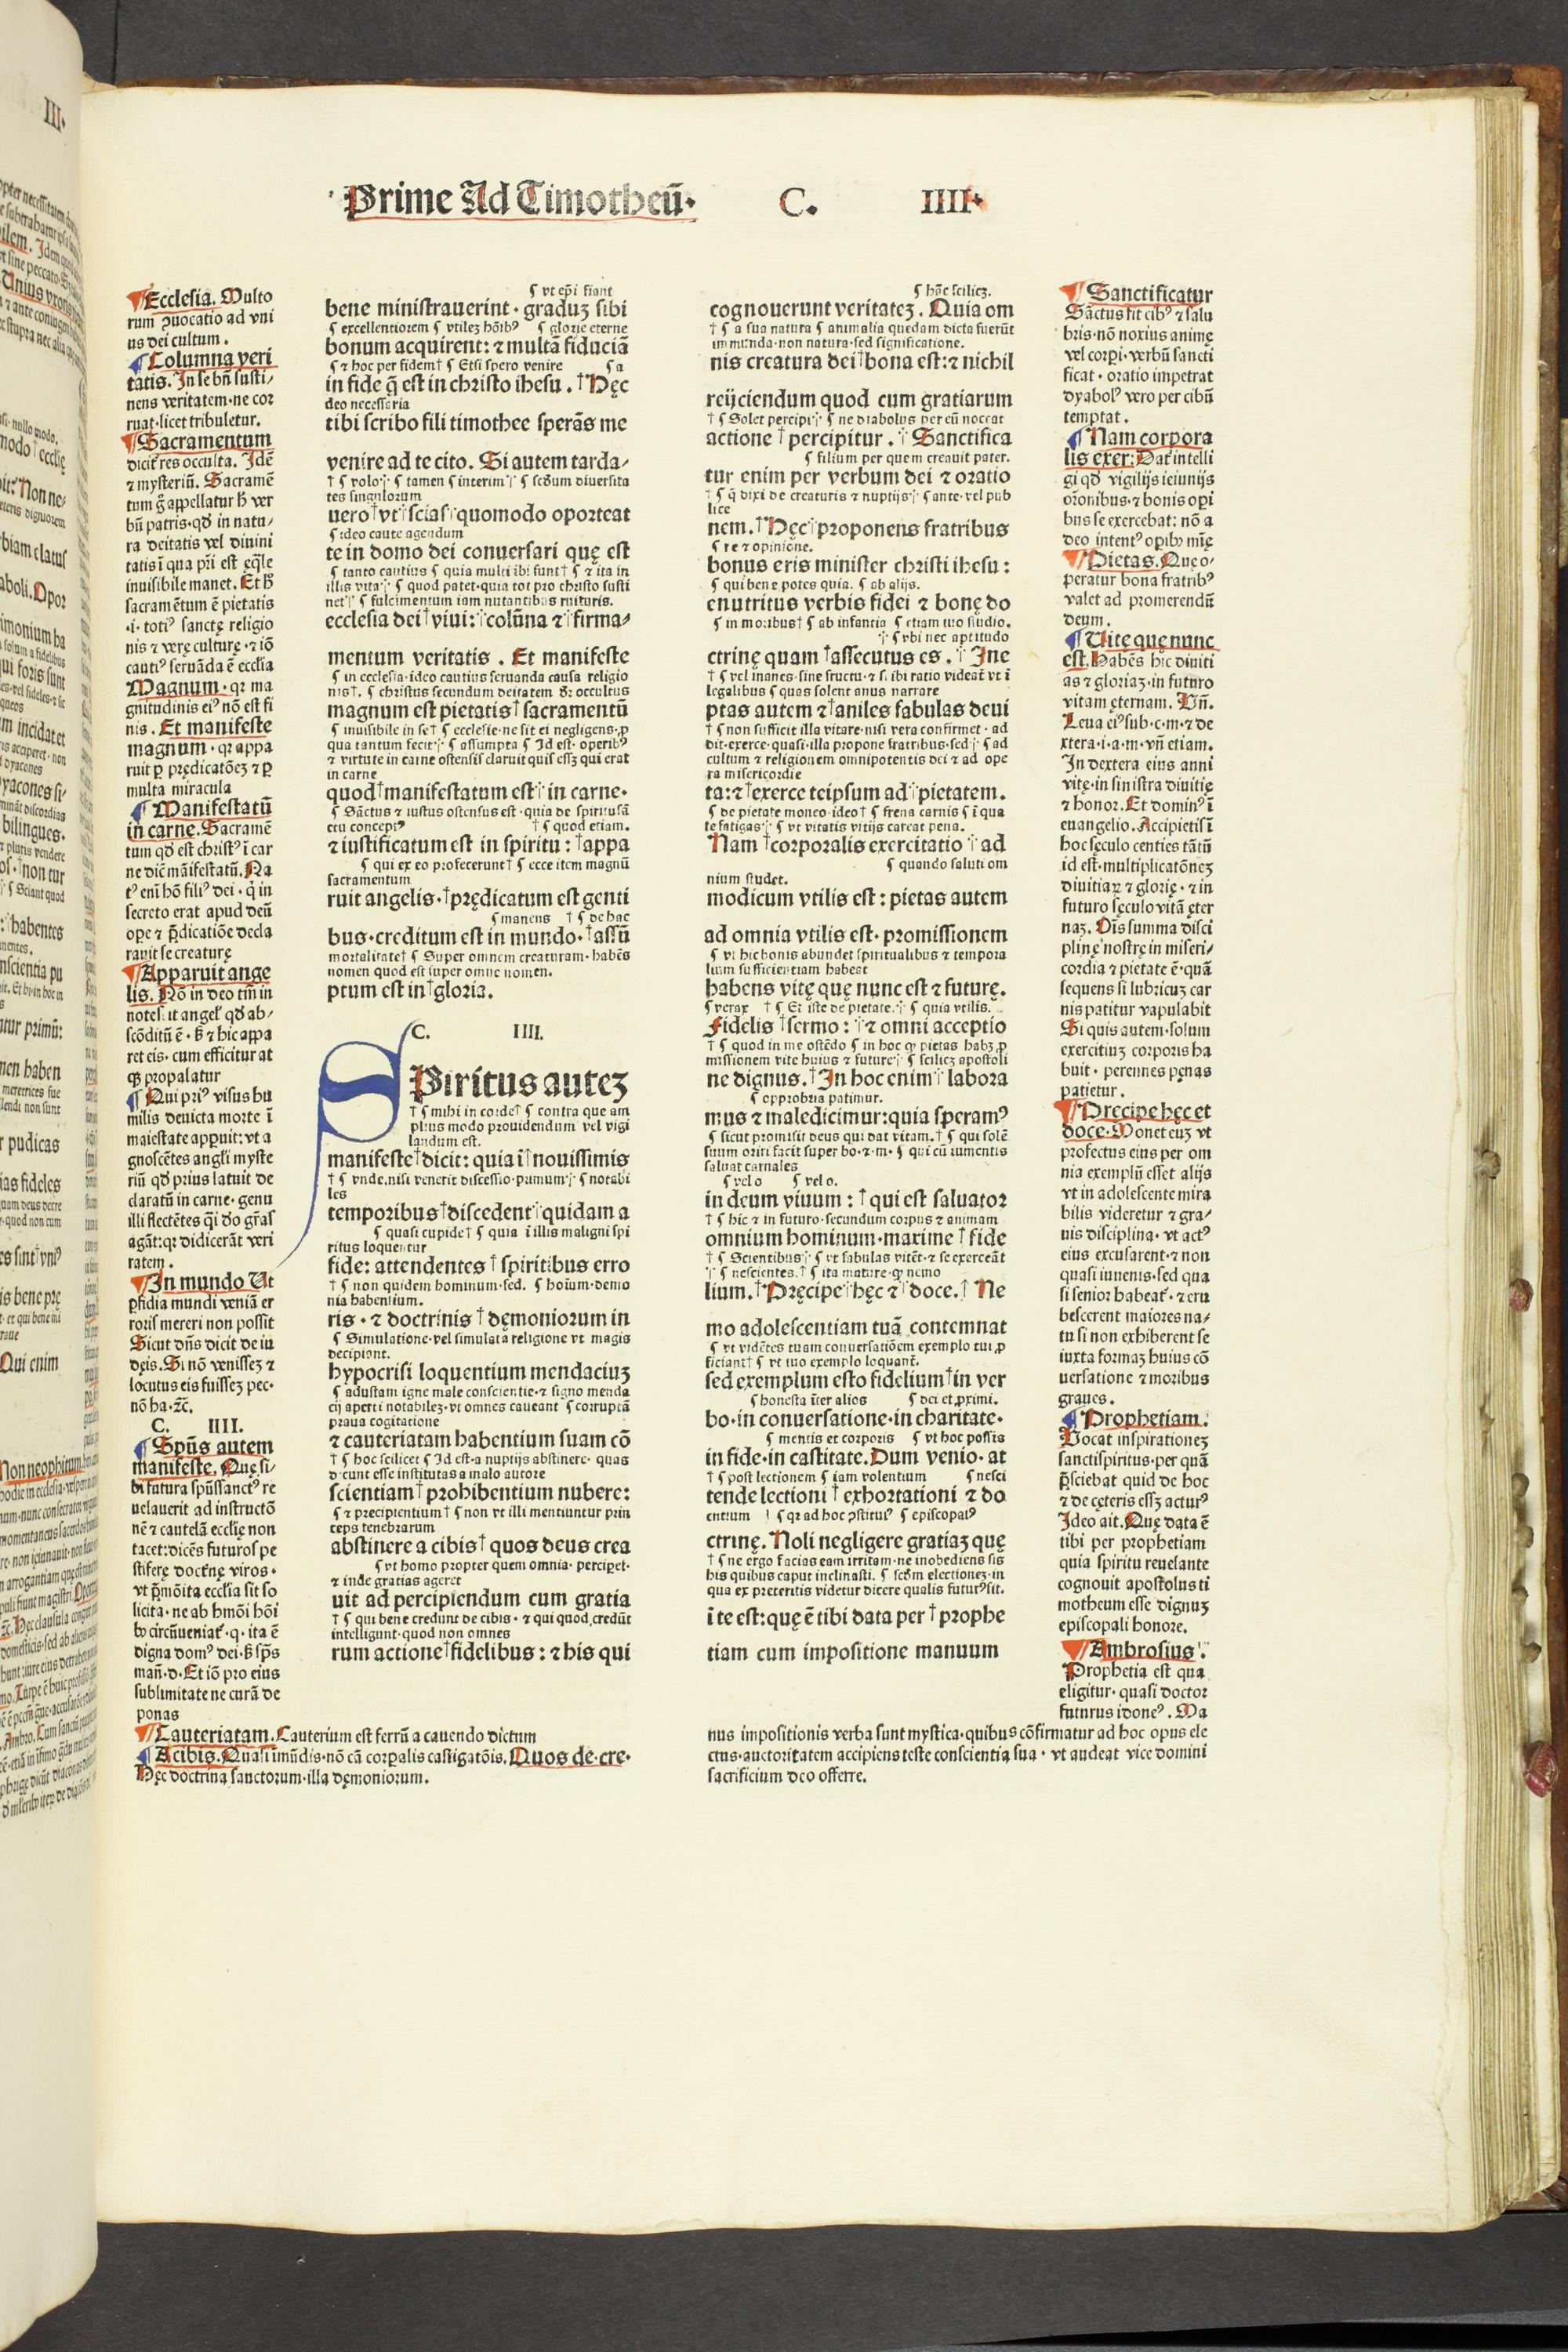 Prime Ad Timotheū. C. IIII.
¶ Ecclesia. Multo
rum ꝓuocatio ad vni
us dei cultum.
¶ Columna veri
tatis. In se bñ susti⸗
nens veritatem·ne cor
ruat·licet tribuletur.
¶ Sacramentum
dicit᷑ res occulta. Idē
⁊ mysteriū. Sacramē
tum ḡ appellatur h̄ ver
bū patris·qđ in natu⸗
ra deitatis vel diuini
tatis ī qua pr̄i est ęq̄le
inuisibile manet. Et h̄
sacramētum ē pietatis
·i· totiꝰ sanctę religio
nis ⁊ verę culturę·⁊ iō
cautiꝰ seruāda ē ecclīa
Magnum·qꝛ ma
gnitudinis eiꝰ nō est fi
nis. Et manifeste
magnum·qꝛ appa
ruit ꝑ prędicatōeȝ ⁊ ꝑ
multa miracula
¶ Manifestatū
in carne. Sacramē
tum qđ est christꝰ ī car
ne dic̄ māifestatū. Na
tꝰ eni hō filiꝰ dei·q̇ in
secreto erat apud deū
oꝑe ⁊ p̄dicatiōe decla
rauit se creaturę
¶ Apparuit ange
lis. Nō in deo tm̄ in
notesċit angeł qđ ab⸗
scōditū ē·s̄ ⁊ hic appa
ret eis·cum efficitur at
qȝ propalatur
¶ Qui priꝰ visus hu
milis deuicta morte ī
maiestate apꝑuit: vt a
gnoscētes angeli myste
riū qđ prius latuit de
claratū in carne·genu
illi flectētes q̄i đo gr̄as
agāt:qꝛ didicerāt veri
ratem.
¶ In mundo Ut
ꝑfidia mundi veniā er
roris mereri non possit
Sicut dn̄s dicit de iu
dęis. Si nō venisseȝ ⁊
locutus eis fuisseȝ pec·
nō ha·⁊c̄.
C. IIII.
¶ Spūs autem
manifeste. Quę si⸗
bi futura spūssanctꝰ re
uelauerit ad instructō
nē ⁊ cautelā ecclię non
tacet:dicēs futuros pe
stiferę doctn̄ę viros·
vt p̄mōita ecclīa sit so
licita·ne ab hm̄oi hōi
bꝰ circūueniat᷑·q·ita ē
digna domꝰ dei·s̄ sp̄s
mań·d·Et iō pro eius
sublimitate ne curā de
ponas
¶ Cauteriatam. Cauterium est ferrū a cauendo dictum
¶ A cibis. Quasi imūdis·nō cā corꝑalis castigatōis. Quos de·cre·
Hęc doctrina sanctorum·illa dęmoniorum.
¶ vt ep̄i fiant
bene ministrauerint·graduȝ sibi
¶ excellentiorem ¶ vtileȝ hōibꝰ ¶ glorię eterne
bonum acquirent: ⁊ multā fiduciā
¶ ⁊ hoc per fidem† ¶ Etsi spero venire ¶ a
in fide q̄ est in christo ihesu. †Hęc
deo necessaria
tibi scribo fili timothee sperās me
venire ad te cito. Si autem tarda⸗
† ¶ volo ¶ tamen ¶ interim ¶ scđum diuersita
tes singulorum
uero†vt†scias quomodo oporteat
¶ ideo caute agendum
te in domo dei conuersari quę est
¶ tanto cautius ¶ quia multi ibi sunt† ¶ ⁊ ita in
illis vita ¶ quod patet·quia tot pro christo susti
net ¶ fulcimentum iam nutantibus ruituris.
ecclesia dei†viui: colūna ⁊ firma⸗
mentum veritatis. Et manifeste
¶ in ecclesia·ideo cautius seruanda causa religio
nis†. ¶ christus secundum deitatem d̄ꝛ occultus
magnum est pietatis†sacramentū
¶ inuisibile in se† ¶ ecclesię·ne sit ei negligens·ꝓ
qua tantum fecit ¶ assumpta ¶ Id est·operibꝰ
⁊ virtute in carne ostensis claruit quis essȝ qui erat
in carne
quod†manifestatum est in carne·
¶ Sāctus ⁊ iustus ostensus est·quia de spiritusā
cto conceptꝰ † ¶ quod etiam.
⁊ iustificatum est in spiritu: †appa
¶ qui ex eo profecerunt† ¶ ecce item magnū
sacramentum
ruit angelis·†prędicatum est genti
¶ manens † ¶ de hac
bus·creditum est in mundo·†assū
mortalitate† ¶ Super omnem creaturam·habēs
nomen quod est super omne nomen.
ptum est in†gloria.
C. IIII.
SPiritus auteȝ
† ¶ mihi in corde† ¶ contra que am
plius modo prouidendum vel vigi
landum est.
manifeste†dicit: quia ī†nouissimis
† ¶ vnde.nisi venerit discessio·primum ¶ notabi
les
temporibus†discedent quidam a
¶ quasi cupide† ¶ quia ī illis maligni spi
ritus loquentur
fide: attendentes†spiritibus erro
† ¶ non quidem hominum·sed. ¶ hoīum·demo
nia habentium.
ris·⁊ doctrinis†dęmoniorum in
¶ Simulatione·vel simulata religione vt magis
decipiant.
hypocrisi loquentium mendaciuȝ
¶ adustam igne male conscientie·⁊ signo menda
cij aperti notabileȝ·vt omnes caueant ¶ corruptā
praua cogitatione
⁊ cauteriatam habentium suam cō
† ¶ hoc scilicet ¶ Id est·a nuptijs abstinere·quas
dicunt esse institutas a malo autore
scientiam†prohibentium nubere:
¶ ⁊ precipientium† ¶ non vt illi mentiuntur prin
ceps tenebrarum
abstinere a cibis†quos deus crea
¶ vt homo propter quem omnia·perciperet·
⁊ inde gratias ageret
uit ad percipiendum cum gratia
† ¶ qui bene credunt de cibis·⁊ qui quod credūt
intelligunt·quod non omnes
rum actione†fidelibus: ⁊ his qui
¶ hāc scilicȝ.
cognouerunt veritateȝ. Quia om
† ¶ a sua natura ¶ animalia quedam dicta fuerūt
immunda·non natura·sed significatione.
nis creatura dei†bona est:⁊ nichil
reijciendum quod cum gratiarum
† ¶ Solet percipi ¶ ne diabolus per eū noceat
actione†percipitur. Sanctifica
¶ filium per quem creauit pater.
tur enim per verbum dei ⁊ oratio
† ¶ q̄ dixi de creaturis ⁊ nuptijs ¶ ante·vel pub
lice
nem.†Hęc proponens fratribus
¶ re ⁊ opinione.
bonus eris minister christi ihesu:
¶ qui bene potes quia. ¶ ab alijs.
enutritus verbis fidei ⁊ bonę do
¶ in moribus† ¶ ab infantia ¶ etiam tuo studio.
¶ vbi nec aptitudo
ctrinę quam†assecutus es. Ine
† ¶ vel inanes·sine fructu·⁊ si ibi ratio videat᷑ vt ī
legalibus ¶ quas solent anus narrare
ptas autem ⁊†aniles fabulas deui
† ¶ non sufficit illa vitare·nisi vera confirmet·ad
dit·exerce·quasi·illa propone fratribus·sed ¶ ad
cultum ⁊ religionem omnipotentis dei ⁊ ad ope
ra misericordie
ta:⁊†exerce teipsum ad pietatem.
¶ de pietate moneo·ideo† ¶ frena carnis ¶ ī qua
te fatigas ¶ vt vitatis vitijs careat pena.
Nam†corporalis exercitatio ad
¶ quando saluti om
nium studet.
modicum vtilis est: pietas autem
ad omnia vtilis est·promissionem
¶ vt hic bonis abundet spiritualibus ⁊ tempora
lium sufficientiam habeat
habens vitę quę nunc est ⁊ futurę.
¶ verax † ¶ Et iste de pietate. ¶ quia vtilis.
Fidelis†sermo: ⁊ omni acceptio
† ¶ quod in me ostēdo ¶ in hoc qȝ pietas habȝ ꝓ
missionem vite huius ⁊ future ¶ scilicȝ apostoli
ne dignus.†In hoc enim labora
¶ opprobria patimur.
mus ⁊ maledicimur:quia speramꝰ
¶ sicut promisit deus qui dat vitam.† ¶ qui solē
suum oriri facit super bo·⁊·m· ¶ qui cū iumentis
saluat carnales
¶ vel o ¶ vel o.
in deum viuum: †qui est saluator
† ¶ hic ⁊ in futuro·secundum corpus ⁊ animam
omnium hominum·maxime†fide
† ¶ Scientibus ¶ vt fabulas vitēt·⁊ se exerceāt
¶ nescientes.† ¶ ita mature·qȝ nemo
lium.†Pręcipe hęc ⁊ doce.†Ne
mo adolescentiam tuā contemnat
¶ vt vidētes tuam conuersatiōem exemplo tui ꝓ
ficiant† ¶ vt tuo exemplo loquant᷑.
sed exemplum esto fidelium†in ver
¶ honesta īter alios ¶ dei et ꝓximi.
bo·in conuersatione·in charitate·
¶ mentis et corporis ¶ vt hoc possis
in fide·in castitate. Dum venio·at
† ¶ post lectionem ¶ iam volentium ¶ nesci
tende lectioni†exhortationi ⁊ do
entium ¶ qꝛ ad hoc ꝯstitutꝰ ¶ episcopalꝰ
ctrinę. Noli negligere gratiaȝ quę
† ¶ ne ergo facias eam irritam·ne inobediens sis
his quibus caput inclinasti. ¶ scđm electioneȝ·in
qua ex preteritis videtur dicere qualis futurꝰ sit.
ī te est:quę ē tibi data per†prophe
tiam cum impositione manuum
¶ Sanctificatur
Sāctus fit cibꝰ ⁊ salu
bris·nō noxius animę
vel corpi·verbū sancti
ficat·oratio impetrat
dyabolꝰ vero per cibū
temptat.
¶ Nam corpora
lis exer: Dat᷑ intelli
gi qđ vigilijs ieiunijs
or̄onibus·⁊ bonis oꝑi
bus se exercebat: nō a
deo intentꝰ oꝑibꝰ mīę
¶ Pietas. Que o⸗
peratur bona fratribꝰ
valet ad promerendū
deum.
¶ Uite quę nunc
est. Habēs hic diuiti
as ⁊ gloriaȝ·in futuro
vitam ęternam. Vn̄.
Leua eiꝰ sub·c·m·⁊ de
xtera·i·a·m·vn̄ etiam.
In dextera eius anni
vitę·in sinistra diuitię
⁊ honor. Et dominꝰ ī
euangelio. Accipietis ī
hoc sęculo centies tātū
id est·multiplicatōneȝ
diuitiaꝝ ⁊ glorię·⁊ in
futuro sęculo vitā ęter
naȝ. Oīs summa disci
plinę nostrę in miseri⸗
cordia ⁊ pietate ē·quā
sequens si lubricuȝ car
nis patitur vapulabit
Si quis autem·solum
exercitiuȝ corporis ha
buit·perennes pęnas
patietur.
¶ Precipe hęc et
doce. Monet euȝ vt
profectus eius per om
nia exemplū esset alijs
vt in adolescente mira
bilis videretur ⁊ gra⸗
uis disciplina·vt actꝰ
eius excusarent·⁊ non
quasi iuuenis·sed qua
si senior habeat᷑·⁊ eru
bescerent maiores na⸗
tu si non exhiberent se
iuxta formaȝ huius cō
uersatione ⁊ moribus
graues.
¶ Prophetiam.
Vocat inspirationeȝ
sanctispiritus·per quā
p̄sciebat quid de hoc
⁊ de cęteris essȝ acturꝰ
Ideo ait. Quę data ē
tibi per prophetiam
quia spiritu reuelante
cognouit apostolus ti
motheum esse dignuȝ
episcopali honore.
¶ Ambrosius.
Prophetia est qua
eligitur·quasi doctor
futurus idoneꝰ. Ma
nus impositionis verba sunt mystica·quibus cōfirmatur ad hoc opus ele
ctus·auctoritatem accipiens teste conscientia sua·vt audeat vice domini
sacrificium deo offerre.